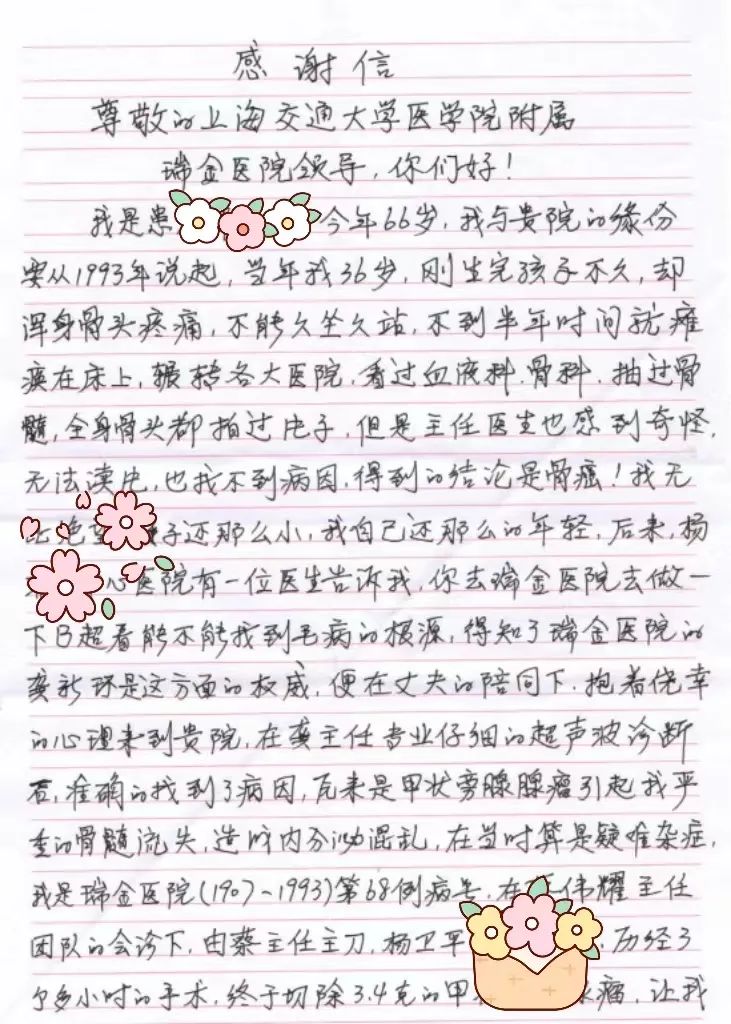 感谢信
尊敬的上海交通大学医学院附属
瑞金医院领导,你们好!
我是患 今年66岁,我与贵院的缘份
要从1993年说起,当年我36岁,刚生完孩子不久,却
浑身骨头疼痛,不能久坐久站,不到半年时间就瘫
痪在床上,辗转各大医院,看过血液科.骨科.抽过骨
髓,全身骨头都拍过片子,但是主任医生也感到奇怪,
无法读片,也找不到病因,得到的结论是骨癌!我无
比绝望 子还那么小,我自己还那么的年轻,后来,杨
心医院有一位医生告诉我,你去瑞金医院去做一
下B超看能不能找到毛病的根源,得知了瑞金医院的
龚新环是这方面的权威,便在丈夫的陪同下.抱着侥幸
的心理来到贵院,在龚主任专业仔细的超声波诊断
后,准确的找到了病因,原来是甲状旁腺腺瘤引起我严
重的骨髓流失,造成内分泌混乱,在当时算是疑难杂症,
我是瑞金医院(1907-1993)第68例病, 在 伟耀主任
团队的会诊下,由蔡主任主刀,杨卫平 ,历经3
个多小时的手术,终于切除3.4克的甲 瘤,让我